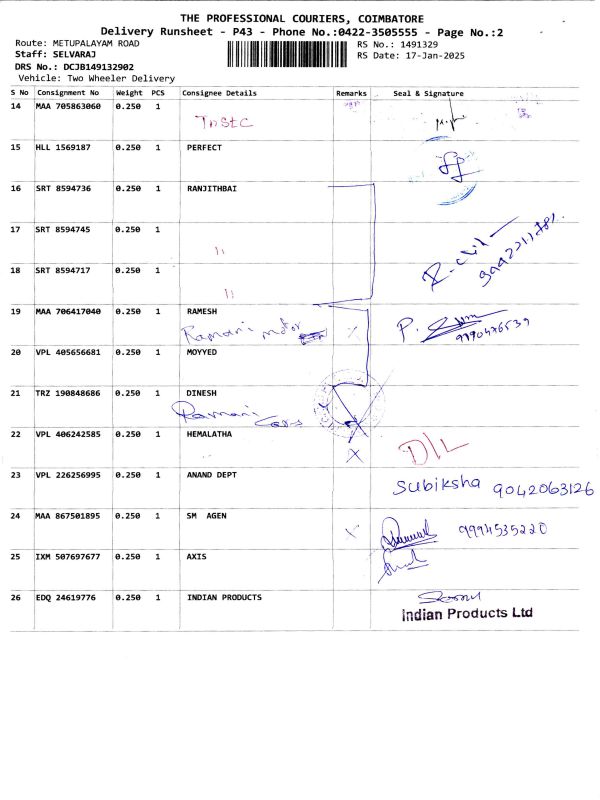 THE PROFESSIONAL COURIERS, COIMBATORE
Delivery Runsheet - P43 - Phone No.:0422-3505555 - Page No.:2
Route: METUPALAYAM ROAD
RS No.: 1491329
Staff: SELVARAJ
RS Date: 17-Jan-2025
DRS No.: DCJB149132902
Vehicle: Two Wheeler Delivery
S No Consignment No Weight PCS Consignee Details Remarks Seal & Signature
14 MAA 705863060 0.250 1
15 HLL 1569187 0.250 1 PERFECT
16 SRT 8594736 0.250 1 RANJITHBAI
17 SRT 8594745 0.250 1
"
18 SRT 8594717 0.250 1
"
19 MAA 706417040 0.250 1 RAMESH
Ramani motor X
20 VPL 405656681 0.250 1 MOYYED
21 TRZ 190848686 0.250 1 DINESH
Ramani Cars
22 VPL 406242585 0.250 1 HEMALATHA
X D/L
23 VPL 226256995 0.250 1 ANAND DEPT
Subiksha 9042063126
24 MAA 867501895 0.250 1 SM AGEN
9994535220
25 IXM 507697677 0.250 1 AXIS
26 EDQ 24619776 0.250 1 INDIAN PRODUCTS
Indian Products Ltd